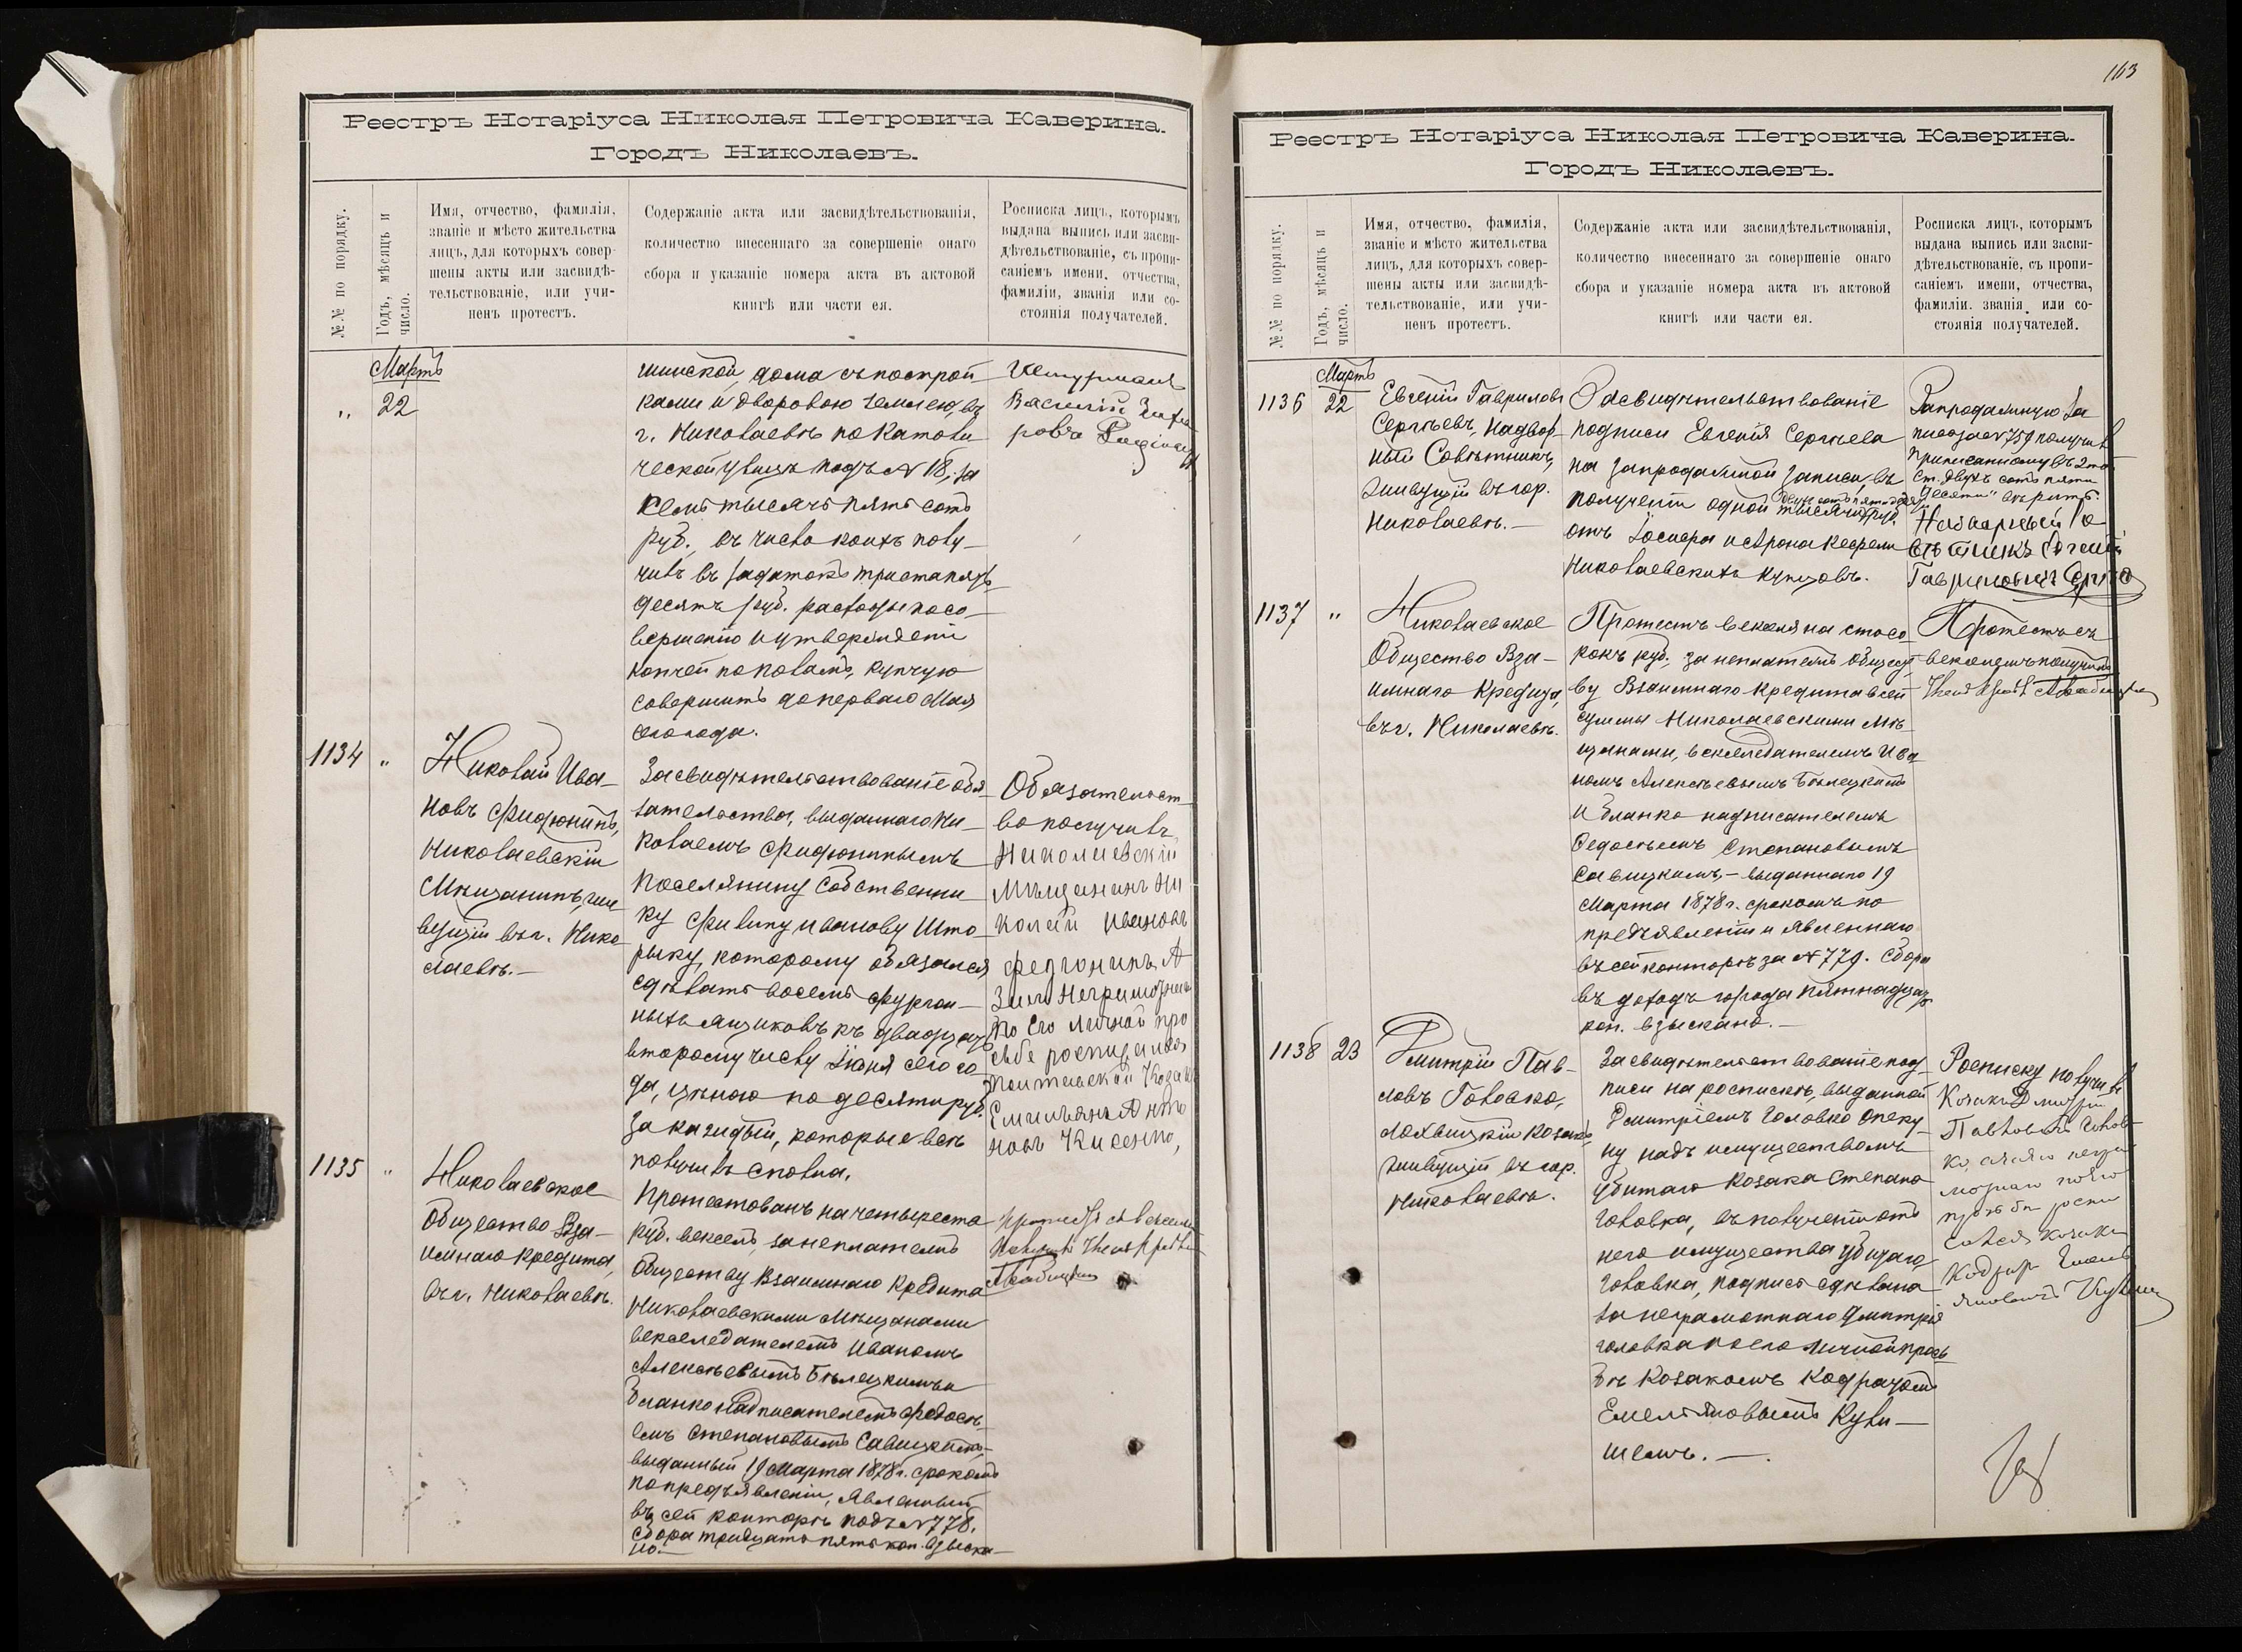 Реестръ Нотаріуса Николая Петровича Каверина.
Городъ Николаевъ.
№№ по порядку.
Годъ, мѣсяцъ и
число.
Имя, отчество, фамилія,
званіе и мѣсто жительства
лицъ, для которыхъ совер-
шены акты или засвидѣ-
тельствованіе, или учи-
ненъ протестъ.
Содержаніе акта или засвидѣтельствованія,
количество внесеннаго за совершеніе онаго
сбора и указаніе номера акта въ актовой
книгѣ или части ея.
Росписка лицъ, которымъ
выдана выпись или засви-
дѣтельствованіе, съ пропи-
саніемъ имени, отчества,
фамиліи, званія или со-
стоянія получателей.
Мартъ
" 22
шинской, дома съ построй
ками и дворовою землею, въ
г. Николаевѣ по Катови
ческой улицѣ подъ № 18, за
семь тысячъ пять сотъ
руб., въ число коихъ полу-
чилъ въ задатокъ триста пять
десятъ руб. расходы по со-
вершенію и утвержденію
купчей пополамъ, купчую
совершить до перваго Мая
сего года.
Василій
1134 "
Николай Ива-
новъ Фидюнинъ,
Николаевскій
Мѣщанинъ, жи
вущій въ г. Нико
лаевѣ.-
Засвидѣтельствованіе обя-
зательства, выданнаго Ни-
колаемъ Фидюнинымъ
Поселянину Собственни-
ку Филипу Иванову Што-
рыку, которому обязался
сдѣлать восемь фургон-
ныхъ ящиковъ къ двадцать
второму числу Іюня сего го-
да, цѣною по десяти руб.
за каждый, которые всѣ
получилъ сполна.
Обязательст
во получилъ
Николаевскій
Мѣщанинъ Ни
колай Ивановъ
Федюнинъ А
За него Неграмотнаго
По Его личной про
сьбе росписался
Козакъ
Емельянъ Анто
новъ Кисенко,
1135 "
Николаевское
Общество Вза-
имнаго Кредита,
въ г. Николаевѣ.
Протестованъ на четыреста
руб. вексель, за неплатежъ
Обществу Взаимнаго Кредита
Николаевскими Мѣщанами
векселедателемъ Иваномъ
Алексѣевымъ Бѣлецкимъ и
бланконадписателемъ Федосѣ
емъ Степановымъ Савицкимъ-
выданный 19 Марта 1878 г. срокомъ
по предъявленіи, явленный
въ сей конторѣ подъ № 778.
Сбора тридцать пять коп. взыска-
но.-
Протестъ съ векселемъ
получилъ
163
Реестръ Нотаріуса Николая Петровича Каверина.
Городъ Николаевъ.
№№ по порядку.
Годъ, мѣсяцъ и
число.
Имя, отчество, фамилія,
званіе и мѣсто жительства
лицъ, для которыхъ совер-
шены акты или засвидѣ-
тельствованіе, или учи-
ненъ протестъ.
Содержаніе акта или засвидѣтельствованія,
количество внесеннаго за совершеніе онаго
сбора и указаніе номера акта въ актовой
книгѣ или части ея.
Росписка лицъ, которымъ
выдана выпись или засви-
дѣтельствованіе, съ пропи-
саніемъ имени, отчества,
фамиліи, званія или со-
стоянія получателей.
Мартъ
1136 22
Евгеній Гавриловъ
Сергѣевъ, Надвор-
ный Совѣтникъ,
живущій въ гор.
Николаевѣ.-
Засвидѣтельствованіе
подписи Евгенія Сергѣева
на запродажной записи, въ
двухсотъ пятидесяти
полученіи одной тысячи руб.
отъ Іосифа и Арона Кефели
Николаевскихъ Купцовъ.
Запродажную за
пись за № 759 получилъ
Приписанному въ 2мъ
ст. двухъ сотъ пяти
десяти" вѣрить.
Надворный Со
вѣтникъ Евгеній
Гавриловичъ Сергѣевъ
1137 "
Николаевское
Общество Вза-
имнаго Кредита,
въ г. Николаевѣ.
Протестъ векселя на сто со
рокъ руб., за неплатежъ Общест
ву Взаимнаго Кредита всей
суммы Николаевскими Мѣ
щанами, векселедателемъ Ива
номъ Алексѣевымъ Бѣлецкимъ
и бланко надписателемъ
Федосѣемъ Степановымъ
Савицкимъ,- выданнаго 19
Марта 1878 г. срокомъ по
предъявленіи и явленнаго
въ сей конторѣ за № 779. Сбора
въ доходъ города пятнадцать
коп. взыскано.-
Протестъ съ
векселемъ получилъ
1138 23
Дмитрій Пав-
ловъ Головко,
Лохвицкій козакъ
живущій въ гор.
Николаевѣ.
Засвидѣтельствованіе под-
писи на роспискѣ, выданной
Дмитріемъ Головко опеку-
ну надъ имуществомъ
убитаго козака Степана
Головка, въ полученіи отъ
него имущества убитаго
Головка, подпись сдѣлана
за неграмотнаго Дмитрія
Головка по его личной прось
бѣ Козакомъ Кодратомъ
Емельяновымъ Кули-
шемъ.-
Росписку получилъ
Козакъ Дмитрій
Павловъ Голов-
ко, а за его негра
мотнаго по его
прозьби роспи
сался козакъ
Кодрат Емель
яновичъ Кулишъ